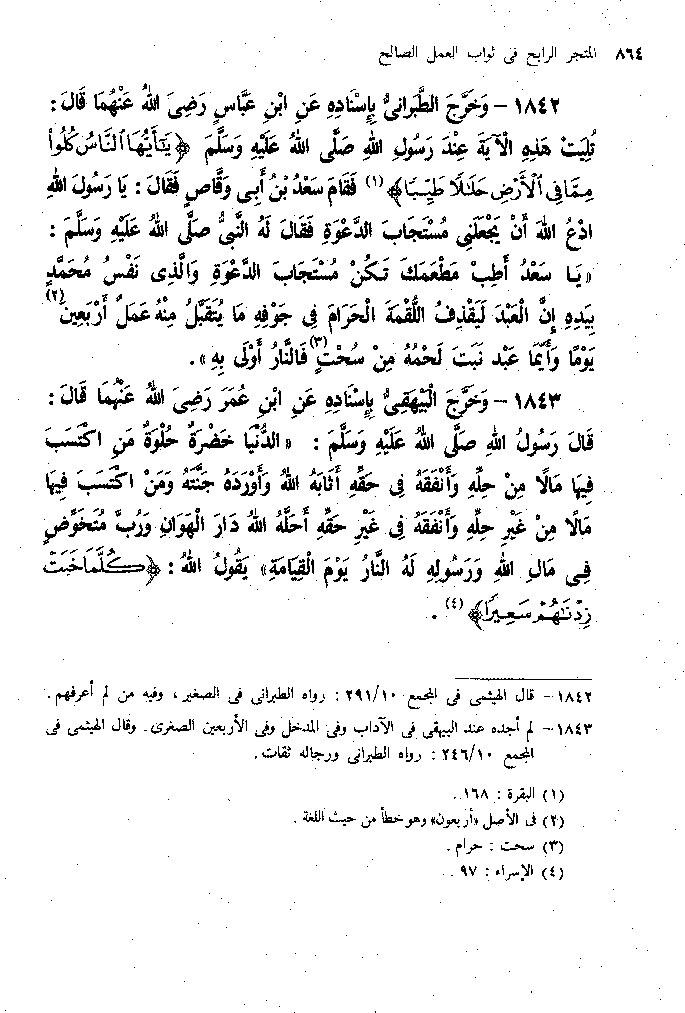 ٨٦٤ المتجر الرابح فى ثواب العمل الصالح
١٨٤٢ - وَخَرَّجَ الطَّبَرَانىُّ بِإِسْنَادِهِ عَنِ ابْنِ عَبَّاسٍ رَضِىَ اللهُ عَنْهُمَا قَالَ :
تُلِيَتْ هَذِهِ الْآيَةُ عِنْدَ رَسُولِ اللهِ صَلَّى اللهُ عَلَيْهِ وَسَلَّمَ ﴿يَـٰٓأَيُّهَا ٱلنَّاسُ كُلُوا۟
مِمَّا فِى ٱلْأَرْضِ حَلَـٰلًا طَيِّبًا﴾ (١) فَقَامَ سَعْدُ بْنُ أَبِى وَقَّاصٍ فَقَالَ : يَا رَسُولَ اللهِ
ادْعُ اللهَ أَنْ يَجْعَلَنِى مُسْتَجَابَ الدَّعْوَةِ فَقَالَ لَهُ النَّبِىُّ صَلَّى اللهُ عَلَيْهِ وَسَلَّمَ :
«يَا سَعْدُ أَطِبْ مَطْعَمَكَ تَكُنْ مُسْتَجَابَ الدَّعْوَةِ وَالَّذِى نَفْسُ مُحَمَّدٍ
بِيَدِهِ إِنَّ الْعَبْدَ لَيَقْذِفُ اللُّقْمَةَ الْحَرَامَ فِى جَوْفِهِ مَا يُتَقَبَّلُ مِنْهُ عَمَلُ أَرْبَعِينَ (٢)
يَوْمًا وَأَيُّمَا عَبْدٍ نَبَتَ لَحْمُهُ مِنْ سُحْتٍ (٣) فَالنَّارُ أَوْلَى بِهِ» .
١٨٤٣ - وَخَرَّجَ الْبَيْهَقِىُّ بِإِسْنَادِهِ عَنِ ابْنِ عُمَرَ رَضِىَ اللهُ عَنْهُمَا قَالَ :
قَالَ رَسُولُ اللهِ صَلَّى اللهُ عَلَيْهِ وَسَلَّمَ : «الدُّنْيَا خَضْرَةٌ حُلْوَةٌ مَنِ اكْتَسَبَ
فِيهَا مَالًا مِنْ حِلِّهِ وَأَنْفَقَهُ فِى حَقِّهِ أَثَابَهُ اللهُ وَأَوْرَدَهُ جَنَّتَهُ وَمَنْ اكْتَسَبَ فِيهَا
مَالًا مِنْ غَيْرِ حِلِّهِ وَأَنْفَقَهُ فِى غَيْرِ حَقِّهِ أَحَلَّهُ اللهُ دَارَ الْهَوَانِ وَرُبَّ مُتَخَوِّضٍ
فِى مَالِ اللهِ وَرَسُولِهِ لَهُ النَّارُ يَوْمَ الْقِيَامَةِ» يَقُولُ اللهُ : ﴿كُلَّمَا خَبَتْ
زِدْنَـٰهُمْ سَعِيرًا﴾ (٤) .
١٨٤٢ - قال الهيثمى فى المجمع ٢٩١/١٠ : رواه الطبرانى فى الصغير ، وفيه من لم أعرفهم .
١٨٤٣ - لم أجده عند البيهقى فى الآداب وفى المدخل وفى الأربعين الصغرى . وقال الهيثمى فى
المجمع ٢٤٦/١٠ : رواه الطبرانى ورجاله ثقات .
(١) البقرة : ١٦٨ .
(٢) فى الأصل «أربعون» وهو خطأ من حيث اللغة .
(٣) سحت : حرام .
(٤) الإسراء : ٩٧ .